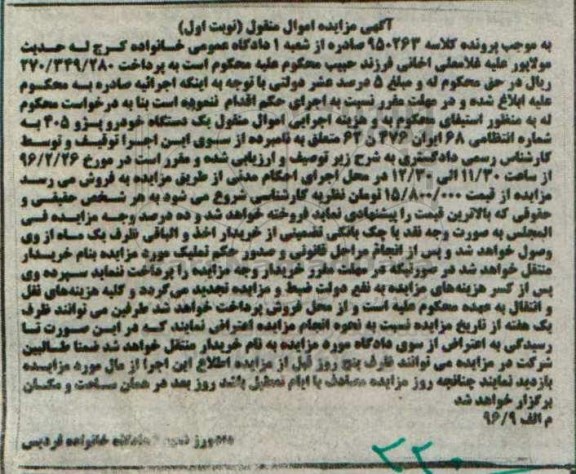 آگهی مزایده اموال منقول (نوبت اول)
به موجب پرونده کلاسه ۹۵۰۲۶۳ صادره از شعبه ۱ دادگاه عمومی خانواده کرج له حدیث
مولاپور علیه غلامعلی اخانی فرزند حبیب محکوم علیه محکوم است به پرداخت ۲۷۰/۳۴۹/۲۸۰
ریال در حق محکوم له و مبلغ ۵ درصد عشر دولتی با توجه به اینکه اجرائیه صادره به محکوم
علیه ابلاغ شده و در مهلت مقرر نسبت به اجرای حکم اقدام ننموده است بنا به درخواست محکوم
له به منظور استیفای محکوم به و هزینه اجرایی اموال منقول یک دستگاه خودرو پژو ۴۰۵ به
شماره انتظامی ۶۸ ایران ۴۷۶ ن ۶۲ متعلق به نامبرده از سوی این اجرا توقیف و توسط
کارشناس رسمی دادگستری به شرح زیر توصیف و ارزیابی شده و مقرر است در مورخ ۹۶/۲/۲۶
از ساعت ۱۱/۳۰ الی ۱۲/۳۰ در محل اجرای احکام مدنی از طریق مزایده به فروش می رسد
مزایده از قیمت ۱۵/۸۰۰/۰۰۰ تومان نظریه کارشناسی شروع می شود به هر شخص حقیقی و
حقوقی که بالاترین قیمت را پیشنهادی نماید فروخته خواهد شد و ده درصد وجه مزایده فی
المجلس به صورت وجه نقد یا چک بانکی تضمینی از خریدار اخذ و الباقی ظرف یک ماه از وی
وصول خواهد شد و پس از انجام مراحل قانونی و صدور حکم تملیک مورد مزایده بنام خریدار
منتقل خواهد شد در صورتیکه در مهلت مقرر خریدار وجه مزایده را پرداخت ننماید سپرده وی
پس از کسر هزینه‌های مزایده به نفع دولت ضبط و مزایده تجدید می‌گردد و کلیه هزینه‌های نقل
و انتقال به عهده محکوم علیه است و از محل فروش پرداخت خواهد شد طرفین می توانند ظرف
یک هفته از تاریخ مزایده نسبت به نحوه انجام مزایده اعتراض نمایند که در این صورت تا
رسیدگی به اعتراض از سوی دادگاه مورد مزایده به نام خریدار منتقل خواهد شد ضمنا طالبین
شرکت در مزایده می توانند ظرف پنج روز قبل از مزایده اطلاع این اجرا از مال مورد مزایده
بازدید نمایند چنانچه روز مزایده مصادف با ایام تعطیل باشد روز بعد در همان ساعت و مکان
برگزار خواهد شد
م الف ۹۶/۹
خانواده فردیس
۲۲۰